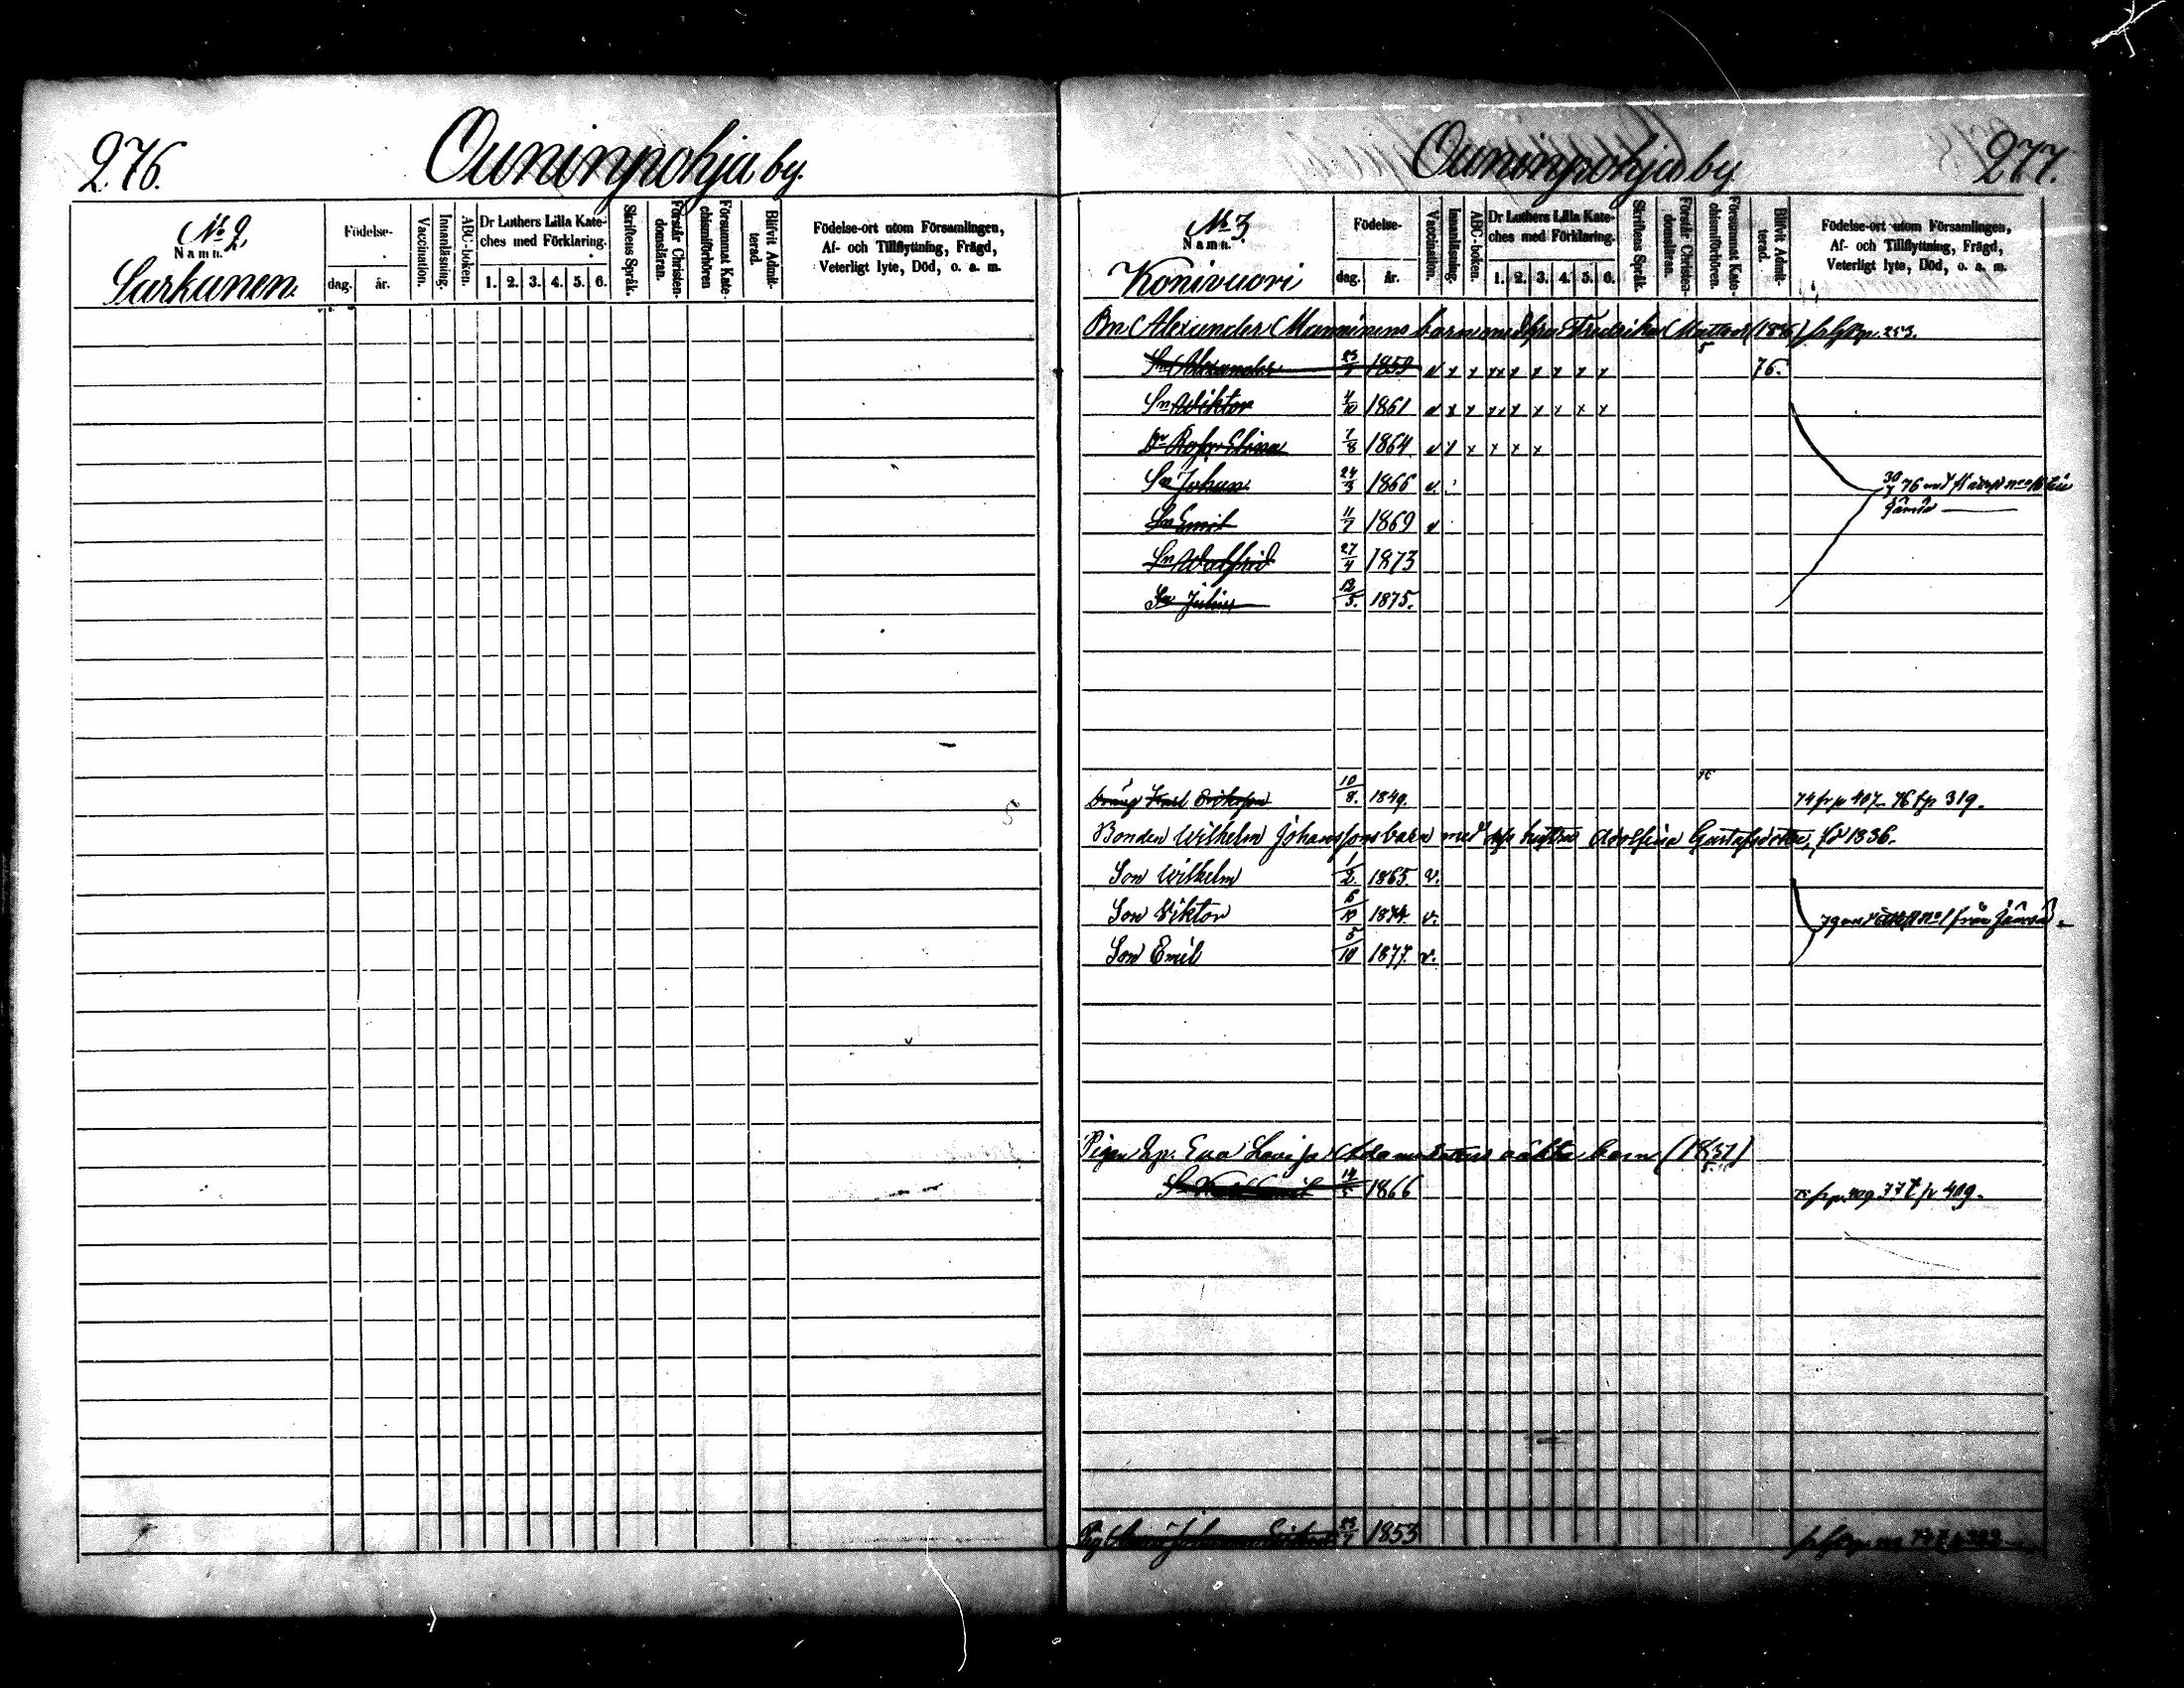 276.
Ouninpohja by.
No 2.
Namn.
Sarkunen.
Födelse-
dag.
år.
Vaccination.
Innanläsning.
ABC-boken.
Dr Luthers Lilla Kate-
ches med Förklaring.
1. 2. 3. 4. 5. 6.
Skriftens Språk.
Förstår Christen-
domsläran.
Försummat Kate-
chismiförhören
Blifvit Admit-
terad.
Födelse-ort utom Församlingen,
Af- och Tillflyttning, Frägd,
Veterligt lyte, Död, o. s. m.
Ouninpohja by
277.
No 3
Namn.
Konivuori
Födelse-
dag. år.
Vaccination.
Innanläsning.
ABC-boken.
Dr Luthers Lilla Kate-
ches med Förklaring.
1. 2. 3. 4. 5. 6.
Skriftens Språk.
Förstår Christen-
domsläran.
Försummat Kate-
chismiförhören.
Blifvit Admit-
terad.
Födelse-ort utom Församlingen,
Af- och Tillflyttning, Frägd,
Veterligt lyte, Död, o. s. m.
Bn Alexander Manninens barn med Fredrika 253.
Sn Alexander 1859 v x x x x x x x x x 76.
Sn Wiktor 4/10 1861 v x x x x x x x x x
Dr Elina 7/8 1864 v x x x x x
Sn Johan 24/3 1866 v. 30/7 76
Sn Emil 1869 v
Sn Walfrid 27/4 1873
Sn Julius 12/5. 1875.
Dräng Karl Eriksson 10/8. 1849. 74 fr p 407. 76 t p 319.
Bonden Wilhelm Johanssons barn med hustru Adolfina Gustafsdotter, 1836.
Son Wilhelm 1/2 1865. v.
Son Viktor 6/10 1874 v. 79 No 1 från Jämsä.
Son Emil 5/10 1877. v.
Pigan Eva Lovisa Adamsdotters oäkta barn (1837)
14/5 1866 77 t p 409.
Johanna 1853